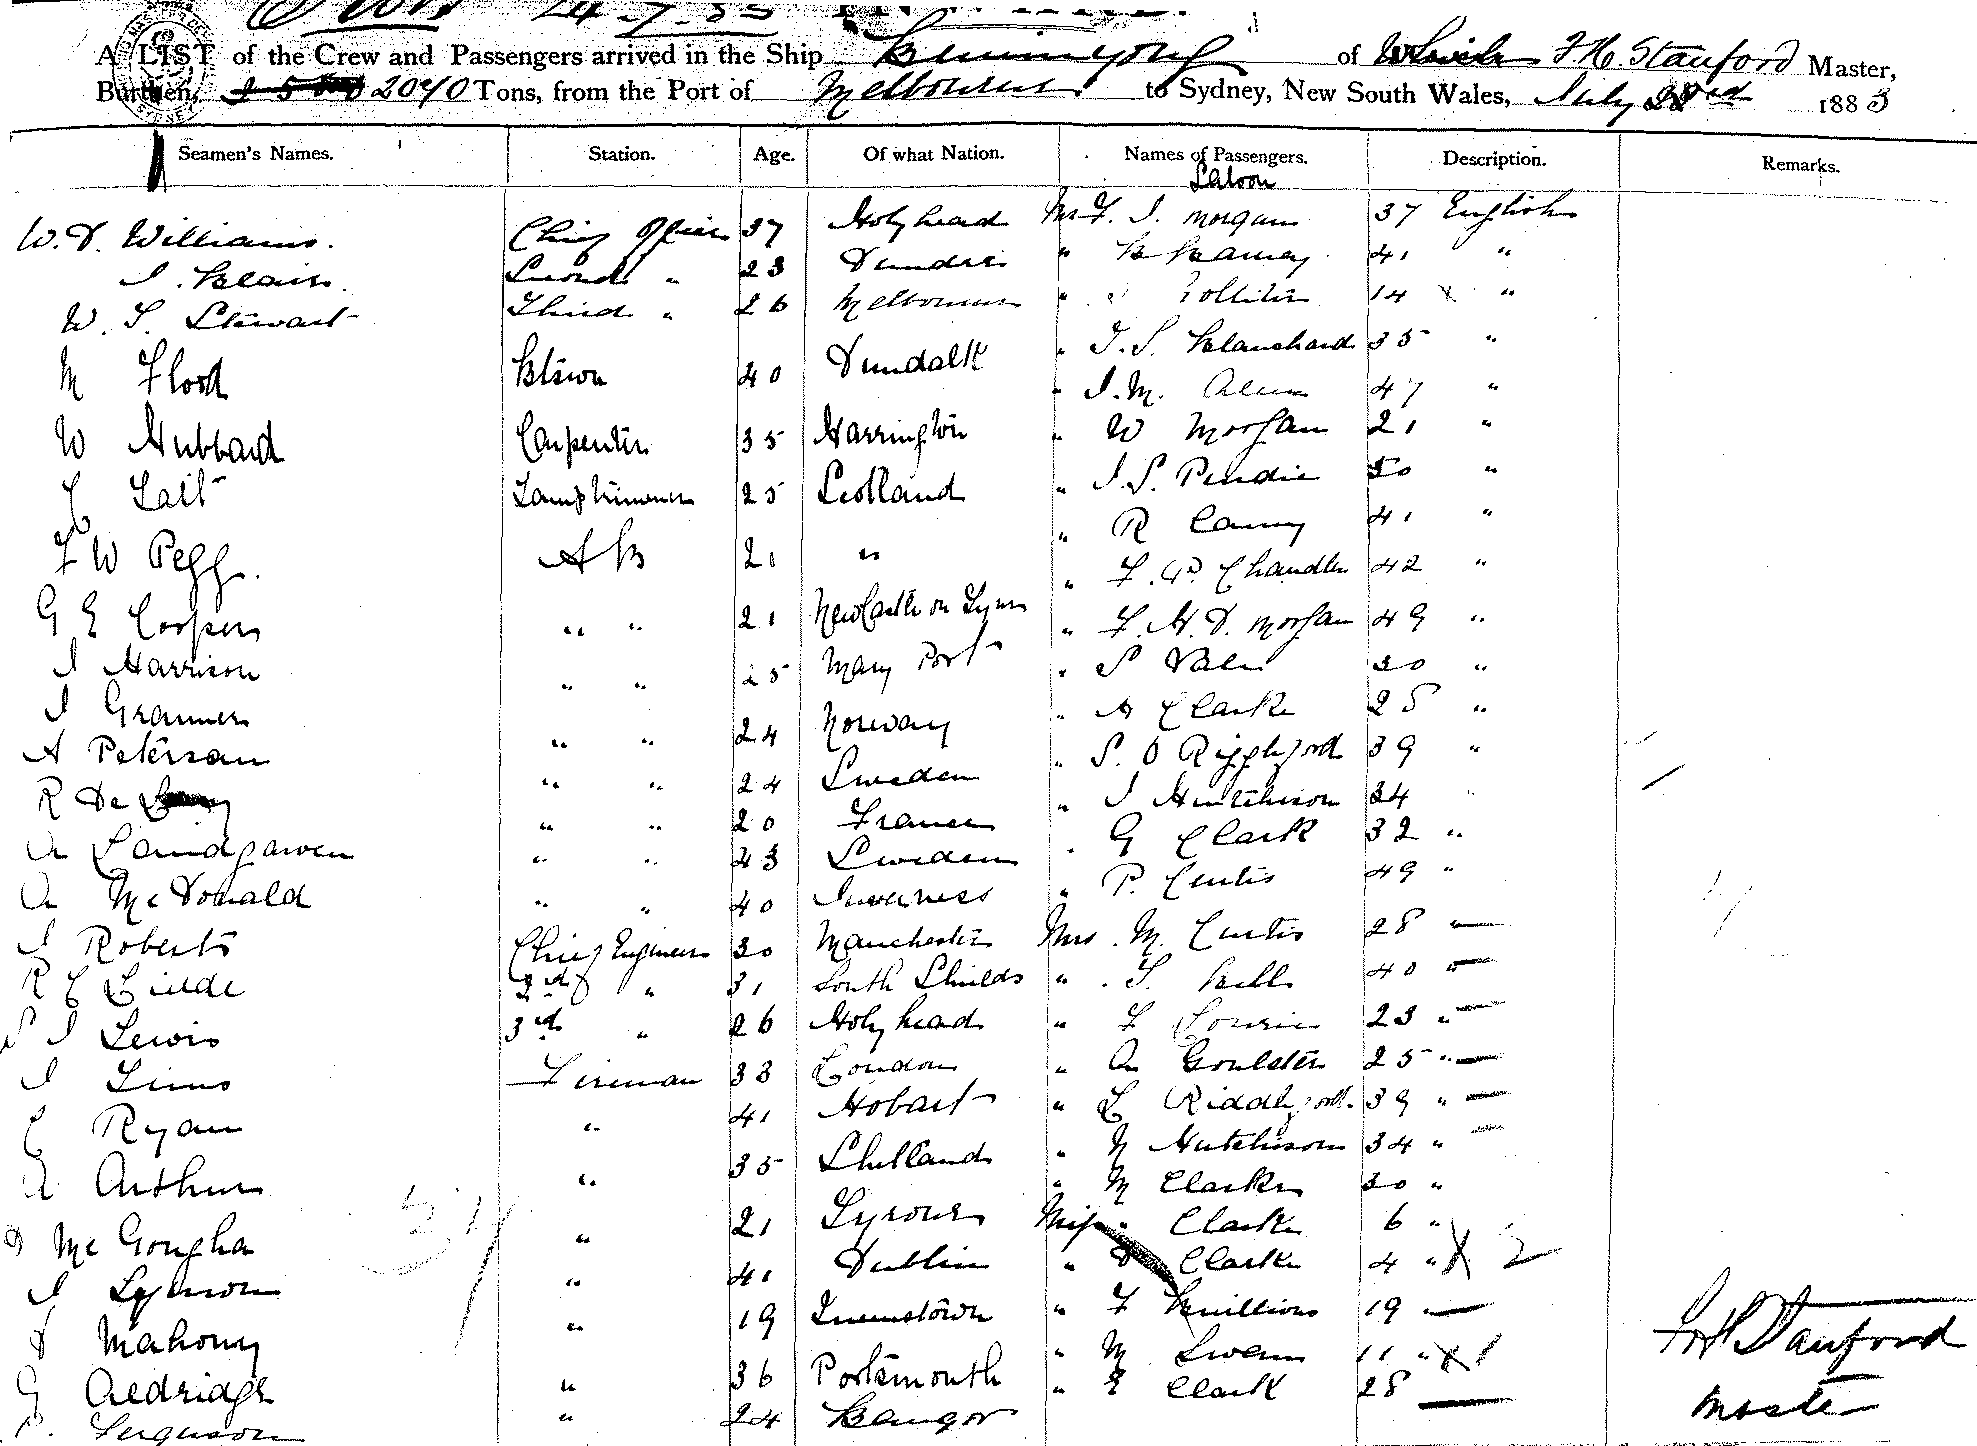 A LIST of the Crew and Passengers arrived in the Ship Buninyong of F H. Stanford Master,
Burthen, 2040 Tons, from the Port of Melbourne to Sydney, New South Wales, July 1883
Seamen's Names. Station. Age. Of what Nation. Names of Passengers. Description. Remarks.
Saloon
W. D. Williams. Chief Officer 37 Holyhead Mr F. J. Morgan 37 English
J. Blair. Second " 23 Dundee " 41 "
W. S. Stewart Third " 26 Melbourne " 14 x "
" J. S. Blanchard 35 "
M Flood Btswn 40 Dundalk " J. M. 47 "
W Hubbard Carpenter 35 Harrington " W Morgan 21 "
Tait Lamptrimmer 25 Scotland " J. S. 50 "
" R 41 "
F W Pegg. A B 21 " " F. Chandler 42 "
G E Cooper " " 21 NewCastle on Tyne " F. H. D. Morgan 49 "
J Harrison " " 25 Mary Port " S 30 "
J Grammer " " 24 Norway " A Clarke 25 "
A Peterson " " 24 Sweden " S. O 39 "
R De " " 20 France " J Hutchison 34 "
A " " 43 Sweden " G Clark 32 "
A McDonald " " 40 Inverness " P. Curtis 49 "
J Roberts Chief Engineer 30 Manchester Mrs. M. Curtis 28 "
R C 2nd " 31 South Shields " S. 40 "
S J Lewis 3rd " 26 Holyhead " F 23 "
J Sims Fireman 33 London " A Goulster 25 "
C Ryan " 41 Hobart " E 39 "
A Arthur " 35 Shetland " N Hutchison 34 "
" M Clarke 30 "
Mc Gougha " 21 Tyrone Miss " Clarke 6 "
J Symon " 41 Dublin " Clarke 4 " X 2
Mahony " 19 Queenstown " F 19
G Aldridge " 36 Portsmouth " M Swan 11 " X 1
Ferguson " 24 Bangor " E Clark 28
F H Stanford
Master